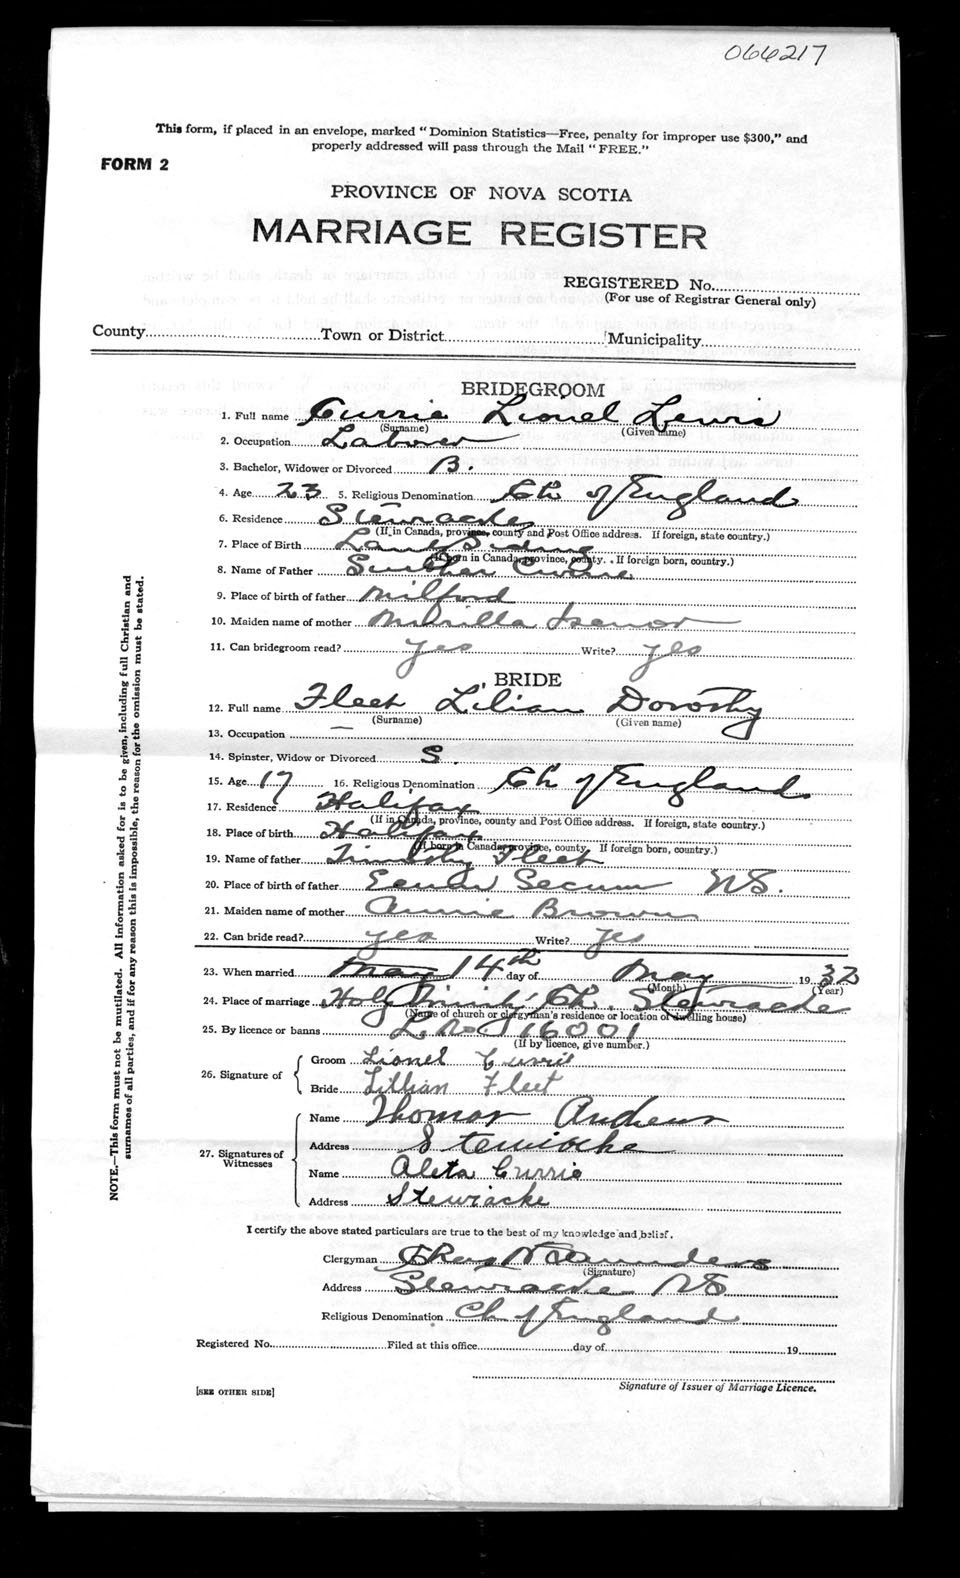 066217
This form, if placed in an envelope, marked "Dominion Statistics—Free, penalty for improper use $300," and
properly addressed will pass through the Mail "FREE."
FORM 2
PROVINCE OF NOVA SCOTIA
MARRIAGE REGISTER
REGISTERED No.
(For use of Registrar General only)
County Town or District Municipality
BRIDEGROOM
1. Full name Currie Lionel Lewis
(Surname) (Given name)
2. Occupation Laborer
3. Bachelor, Widower or Divorced B.
4. Age 23 5. Religious Denomination Ch of England
6. Residence Stewiacke
(If in Canada, province, county and Post Office address. If foreign, state country.)
7. Place of Birth Siding
(If born in Canada, province, county. If foreign born, country.)
8. Name of Father Currie
9. Place of birth of father Milford
10. Maiden name of mother
11. Can bridegroom read? yes Write? yes
BRIDE
12. Full name Fleet Lilian Dorothy
(Surname) (Given name)
13. Occupation —
14. Spinster, Widow or Divorced S.
15. Age 17 16. Religious Denomination Ch of England
17. Residence Halifax
(If in Canada, province, county and Post Office address. If foreign, state country.)
18. Place of birth Halifax
(If born in Canada, province, county. If foreign born, country.)
19. Name of father Timothy Fleet
20. Place of birth of father Secum NS.
21. Maiden name of mother Annie Brown
22. Can bride read? yes Write? yes
23. When married May 14th day of May 1932
(Month) (Year)
24. Place of marriage Holy Trinity Ch. Stewiacke
(Name of church or clergyman's residence or location of dwelling house)
25. By licence or banns L. No 16001
(If by licence, give number.)
26. Signature of
Groom Lionel Currie
Bride Lillian Fleet
27. Signatures of Witnesses
Name Thomas Andrews
Address Stewiacke
Name Aleta Currie
Address Stewiacke
I certify the above stated particulars are true to the best of my knowledge and belief.
Clergyman
(Signature)
Address Stewiacke NS
Religious Denomination Ch of England
Registered No. Filed at this office day of 19
Signature of Issuer of Marriage Licence.
[SEE OTHER SIDE]
NOTE.—This form must not be mutilated. All information asked for is to be given, including full Christian and
surnames of all parties, and if for any reason this is impossible, the reason for the omission must be stated.